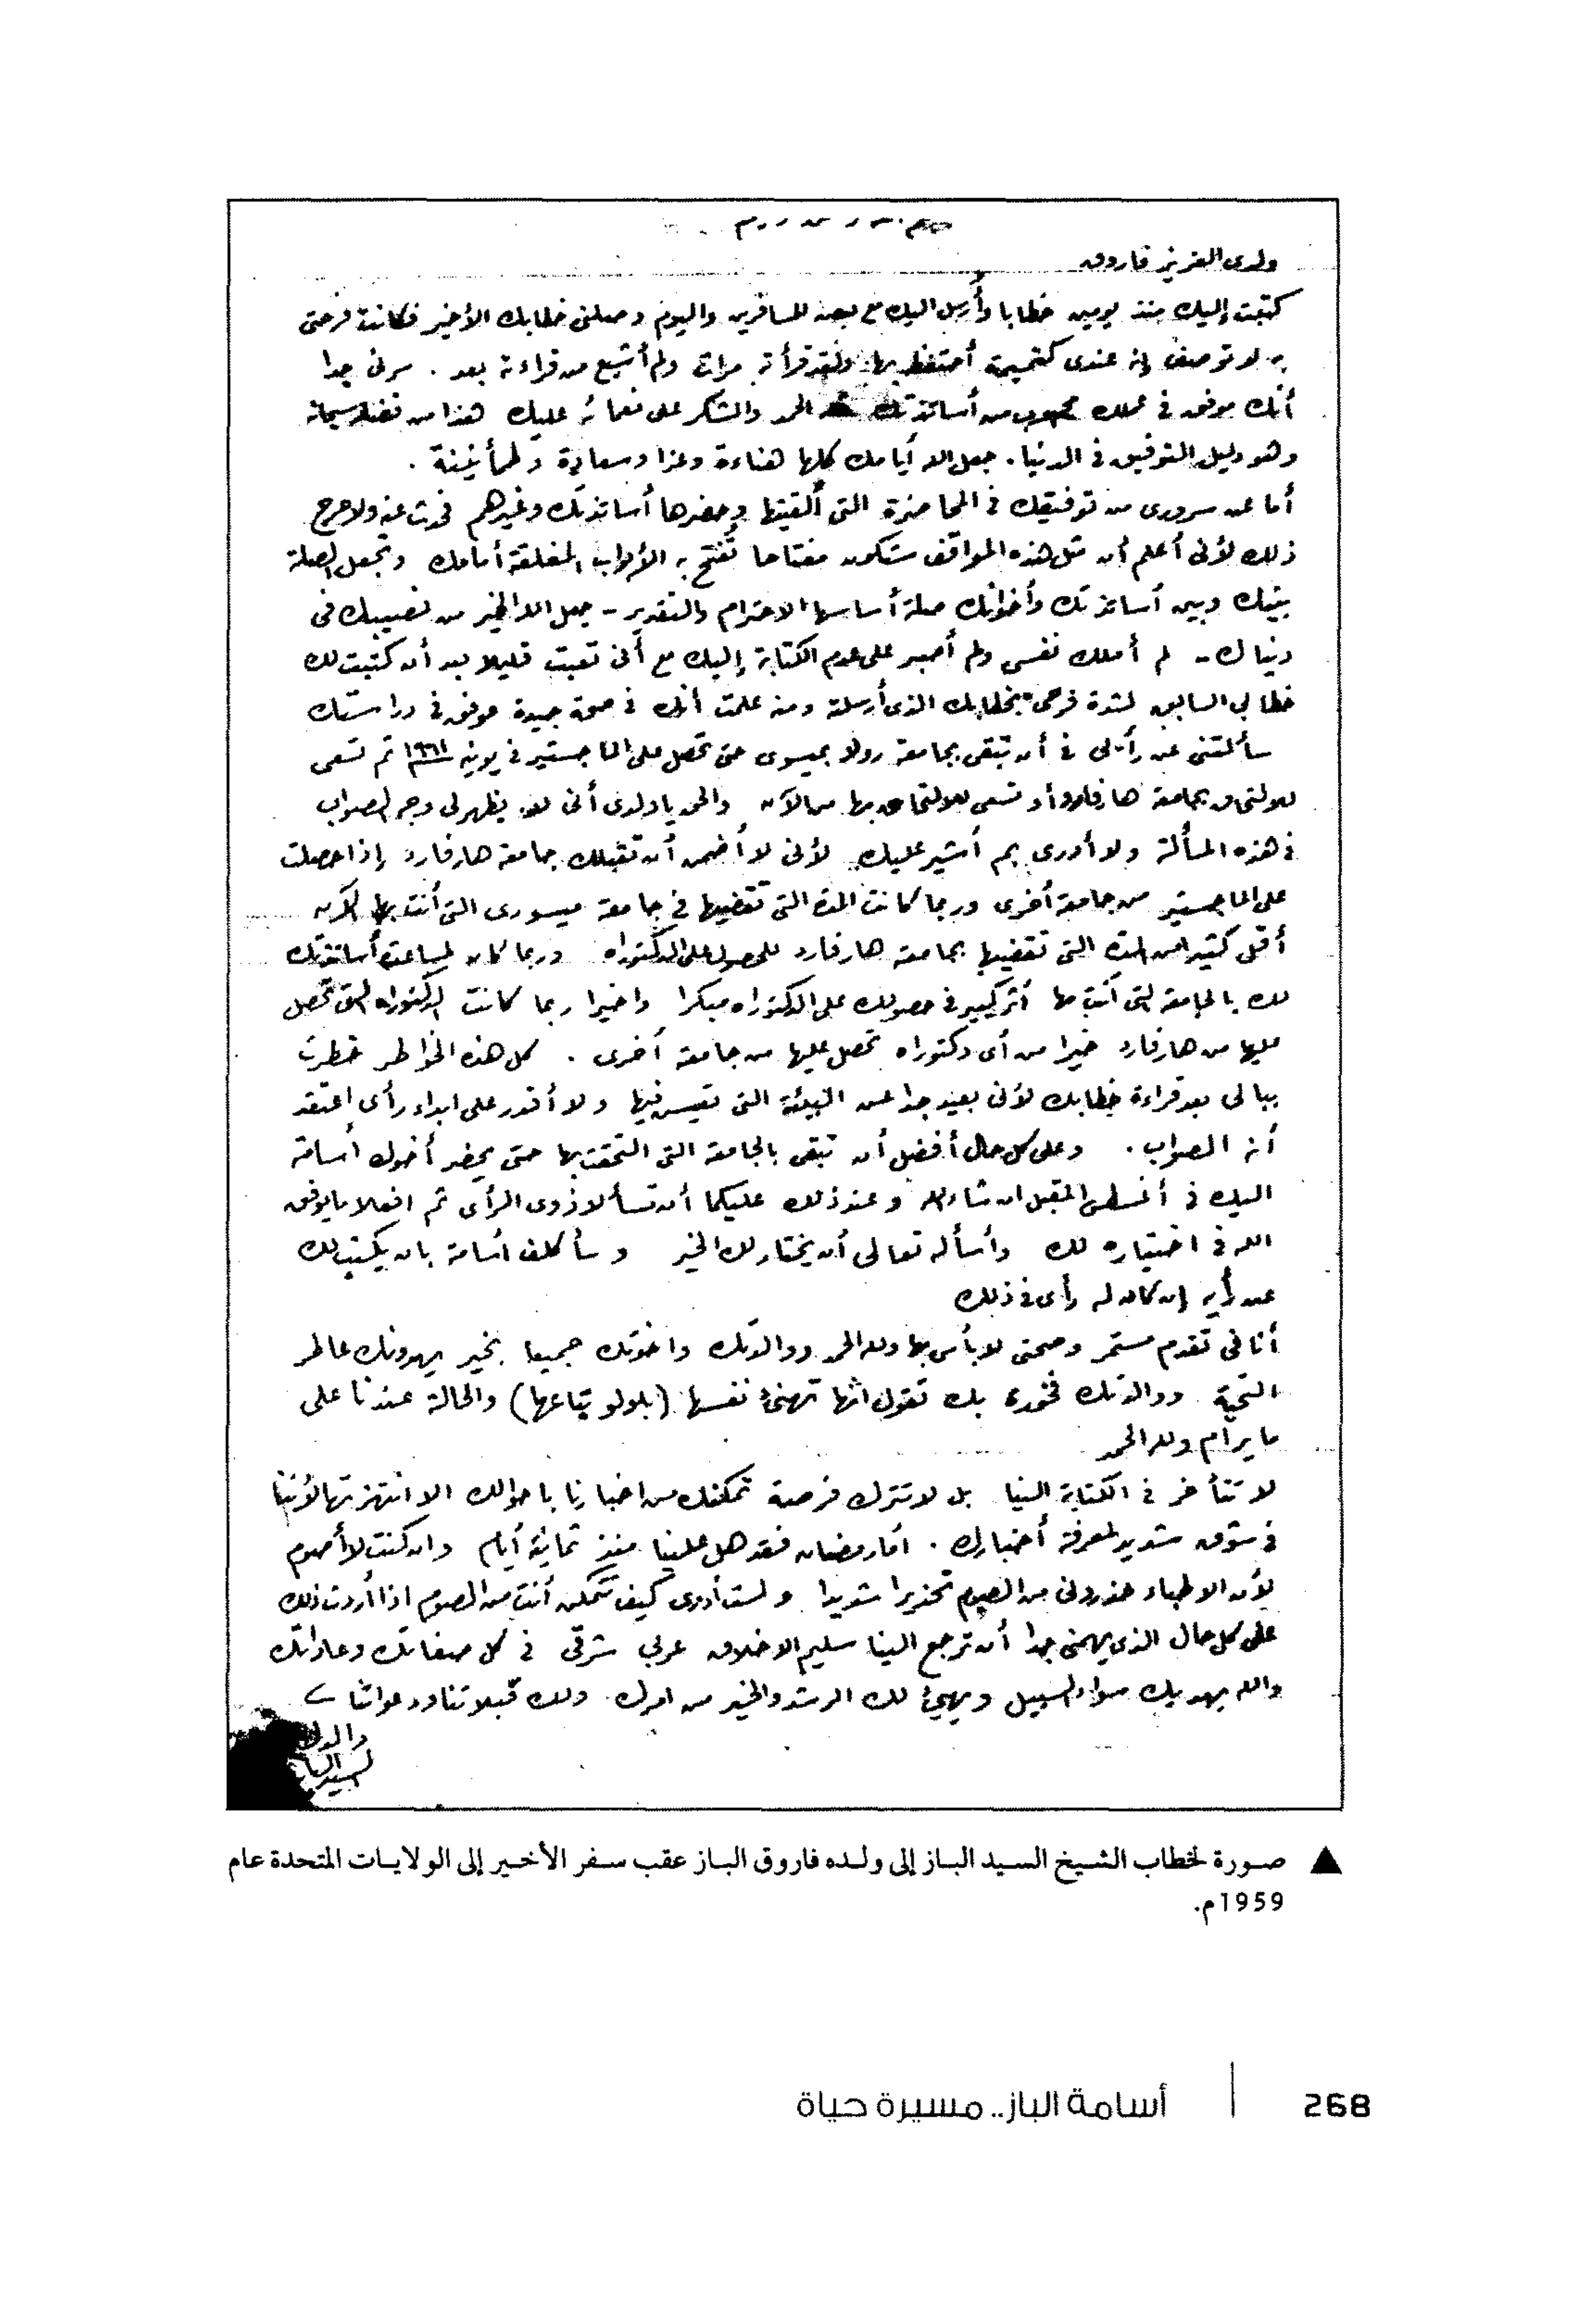 ولدى العزيز فاروق
كتبت إليك منذ يومين خطابا وأرسل اليك مع بعض المسافرين واليوم وصلنى خطابك الأخير فكانت فرحتى
به لا توصف إنه عندى كتميمة أحتفظ بها ولقد قرأته مرات ولم أشبع من قراءته بعد . سرنى جدا
أنك موفق فى عملك محبوب من أساتذتك الحمد والشكر على نعمائه عليك هذا من فضله سبحانه
وهو دليل التوفيق فى الدنيا . جعل الله أيامك كلها هناءة وعزا وسعادة وطمأنينة .
أما عن سرورى من توفيقك فى المحاضرة التى ألقيتها وحضرها أساتذتك وغيرهم فحدث عنه ولا حرج
ذلك لأنى أعلم أن مثل هذه المواقف ستكون مفتاحا تُفتح به الأبواب المغلقة أمامك وتجعل الصلة
بينك وبين أساتذتك وأخوانك صلة أساسها الاحترام والتقدير - جعل الله الخير من نصيبك فى
دنياك - لم أملك نفسى ولم أصبر على عدم الكتابة إليك مع أنى تعبت قليلا بعد أن كتبت لك
خطابى السابق لشدة فرحى بخطابك الذى أرسلته ومنه علمت أنك فى صحة جيدة موفق فى دراستك
سألتنى عن رأيى فى أن تبقى بجامعة رولا بميسورى حتى تحصل على الماجستير فى يونيه ١٩٦١ ثم تسعى
للالتحاق بجامعة هارفارد أو تسعى للالتحاق بها من الآن والحق يا ولدى أنى لم يظهر لى وجه الصواب
فى هذه المسألة ولا أدرى بم أشير عليك لأنى لا أضمن أن تقبلك جامعة هارفارد إذا حصلت
على الماجستير من جامعة أخرى وربما كانت المدة التى تقضيها فى جامعة ميسورى التى أنت بها الآن
أقل كثيرا من المدة التى تقضيها بجامعة هارفارد للحصول على الدكتوراه وربما كان لمساعدة أساتذتك
لك بالجامعة التى أنت بها أثر كبير فى حصولك على الدكتوراه مبكرا واخيرا ربما كانت الدكتوراه التى تحصل
عليها من هارفارد خيرا من أى دكتوراه تحصل عليها من جامعة أخرى . كل هذه الخواطر خطرت
ببالى بعد قراءة خطابك لأنى بعيد جدا عن البيئة التى تعيش فيها ولا أقدر على ابداء رأى اعتقد
أنه الصواب . وعلى كل حال أفضل أن تبقى بالجامعة التى التحقت بها حتى يحضر أخوك أسامة
اليك فى أغسطس المقبل ان شاء الله وعند ذلك عليكما أن تسألا ذوى الرأى ثم افعلا ما يوفق
الله فى اختياره لك وأسأله تعالى أن يختار لك الخير وسأكلف أسامة بان يكتب لك
عن رأيه إن كان له رأى فى ذلك
أنا فى تقدم مستمر وصحتى لا بأس بها ولله الحمد ووالدتك واخوتك جميعا بخير يهدونك عاطر
التحية ووالدتك فخورة بك تقول انها تهنئ نفسها (بلولو بتاعها) والحالة عندنا على
ما يرام ولله الحمد
لا تتأخر فى الكتابة الينا بل لا تترك فرصة تمكنك من اخبارنا باحوالك الا انتهزتها لأننا
فى شوق شديد لمعرفة أخبارك . أما رمضان فقد هل علينا منذ ثمانية أيام وان كنت لا أصوم
لأن الاطباء حذرونى من الصوم تحذيرا شديدا ولست أدرى كيف تتمكن أنت من الصوم اذا أردت ذلك
على كل حال الذى يهمنى جدا أن ترجع الينا سليم الاخلاق عربى شرقى فى كل صفاتك وعاداتك
والله يهديك سواء السبيل ويهيئ لك الرشد والخير من امرك ولك قبلاتنا ودعواتنا
والدك
السيد الباز
▲ صورة لخطاب الشيخ السيد الباز إلى ولده فاروق الباز عقب سفر الأخير إلى الولايات المتحدة عام
1959م.
268 | أسامة الباز.. مسيرة حياة